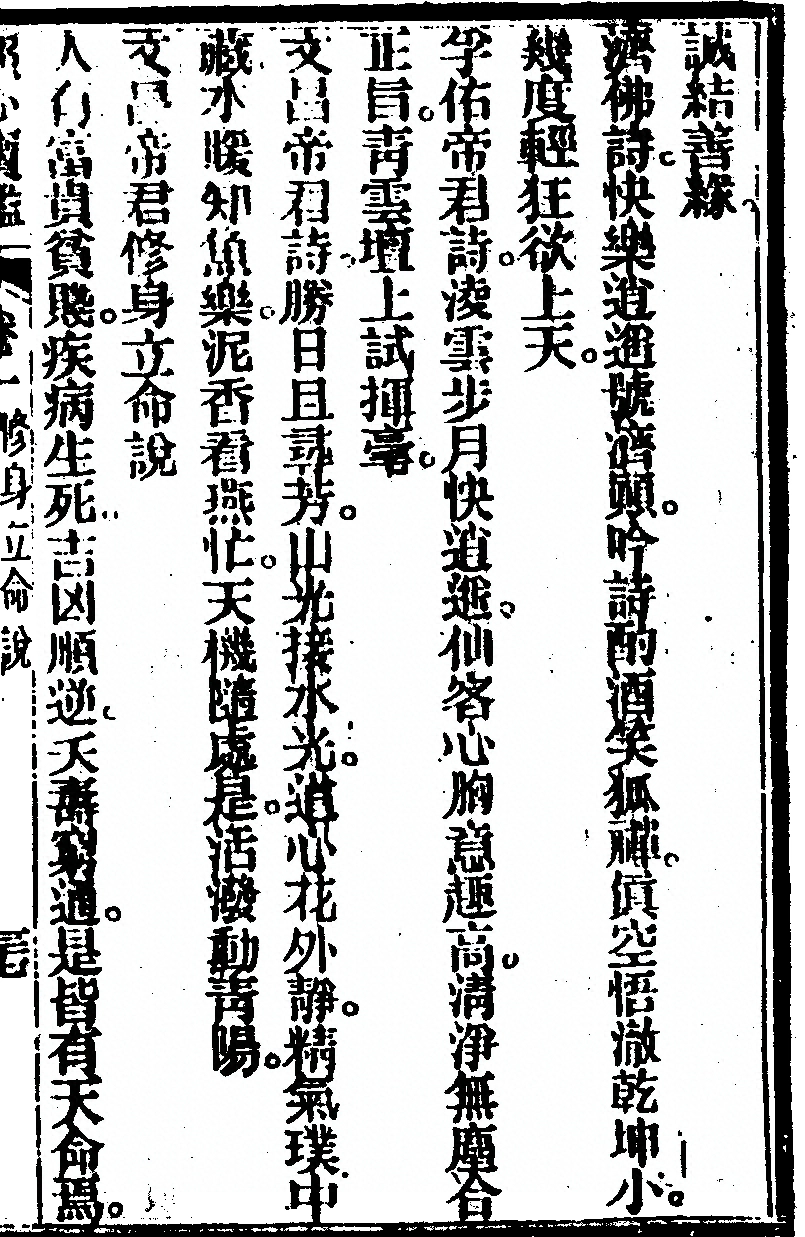 誠結善緣。
濟佛詩。快樂逍遙號濟顛。吟詩酌酒笑狐禪。眞空悟澈乾坤小。
幾度輕狂欲上天。
孚佑帝君詩。淩雲步月快逍遙。仙客心胸意趣高。淸淨無塵合
正旨。靑雲壇上試揮毫。
文昌帝君詩。勝日且尋芳。山光接水光。道心花外靜。精氣璞中
藏。水暖知魚樂。泥香看燕忙。天機隨處是。活潑動靑陽。
文昌帝君修身立命說
人有富貴貧賤。疾病生死。吉凶順逆。夭壽窮通。是皆有天命焉。
卷一 修身立命說